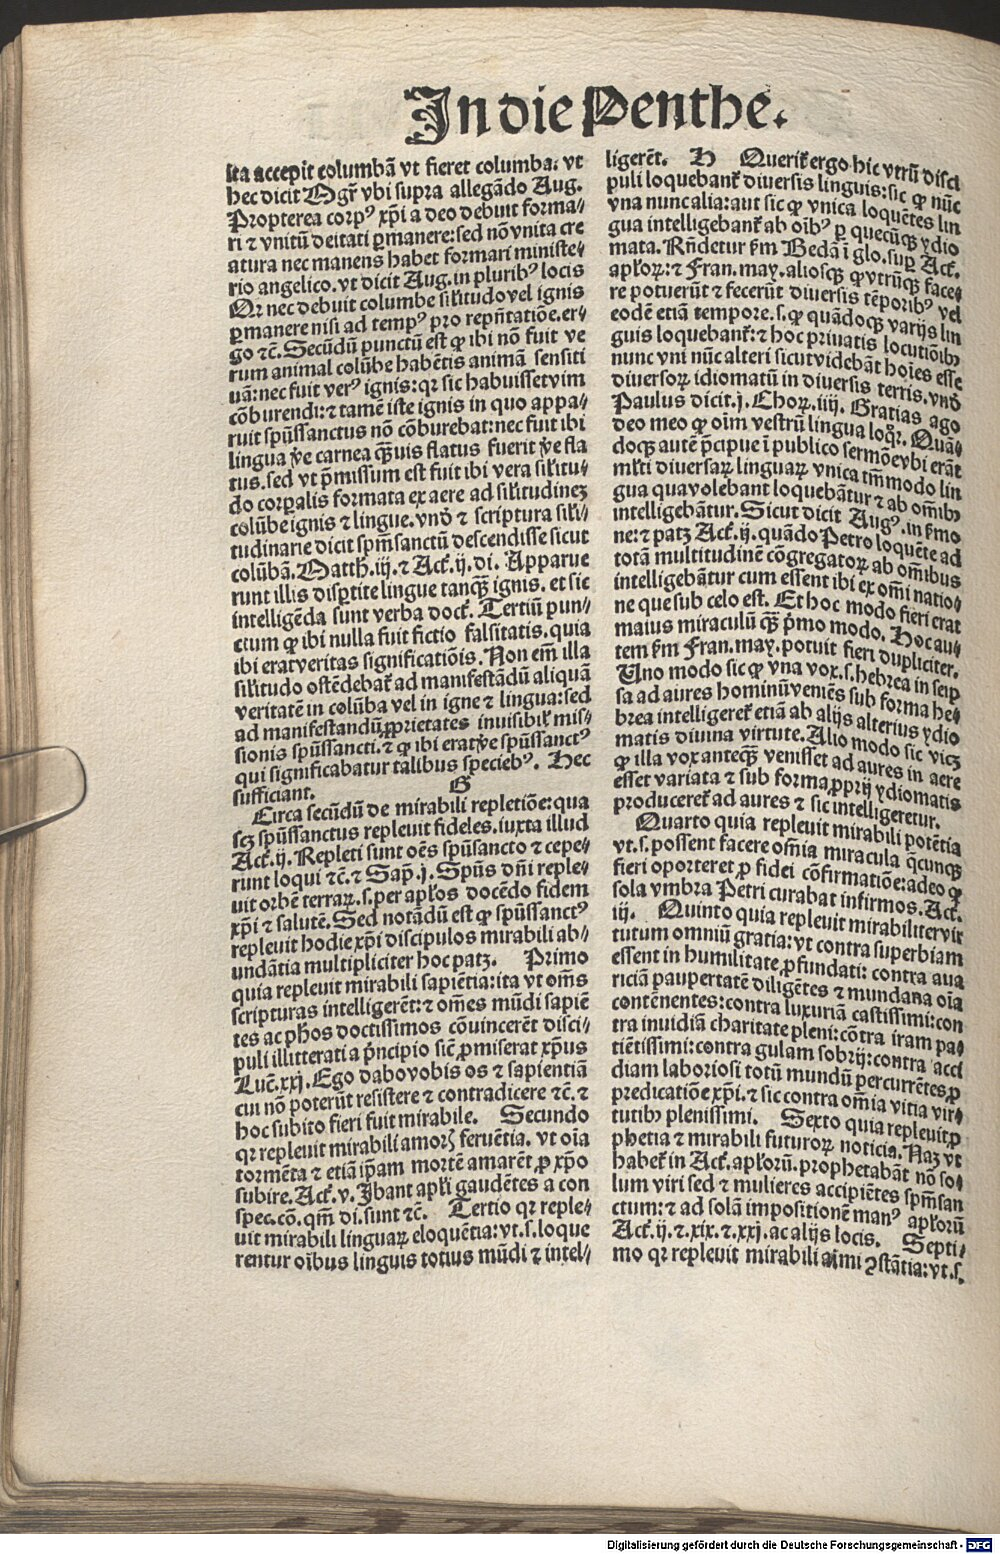 In die Penthe.
ita accepit columbā vt fieret columba. vt
hec dicit Mgr̄ vbi supra allegādo Aug.
Propterea corpꝰ xp̄i a deo debuit forma⸗
ri ⁊ vnitū deitati ꝑmanere: sed nō vnita cre
atura nec manens habet formari ministe⸗
rio angelico. vt dicit Aug. in pluribꝰ locis
Qr nec debuit columbe sil'itudo vel ignis
ꝑmanere nisi ad tempꝰ pro rep̄ntatiōe. er⸗
go ⁊c̄. Secūdū punctū est ꝙ ibi nō fuit ve
rum animal colūbe habētis animā sensiti
uā: nec fuit verꝰ ignis: qr sic habuisset vim
cōburendi: ⁊ tamē iste ignis in quo appa⸗
ruit spūssanctus nō cōburebat: nec fuit ibi
lingua v̄e carnea ꝙ̄uis flatus fuerit v̄e fla
tus. sed vt p̄missum est fuit ibi vera sil'itu⸗
do corꝑalis formata ex aere ad sil'itudineꝫ
colūbe ignis ⁊ lingue. vnō ⁊ scriptura sil'i⸗
tudinarie dicit spm̄sanctū descendisse sicut
colūbā. Matth̄. iij. ⁊ Act̄. ij. di. Apparue
runt illis disꝑtite lingue tanꝙ̄ ignis. et sic
intelligēda sunt verba doct̄. Tertiū pun⸗
ctum ꝙ ibi nulla fuit fictio falsitatis. quia
ibi erat veritas significatiōis. Non em̄ illa
sil'itudo ostēdebat̄ ad manifestādū aliquā
veritatē in colūba vel in igne ⁊ lingua: sed
ad manifestandū ꝓprietates inuisibil' mis⸗
sionis spūssancti. ⁊ ꝙ ibi erat v̄e spūssanctꝰ
qui significabatur talibus speciebꝰ. Hec
sufficiant. G
Circa secūdū de mirabili repletiōe: qua
scꝫ spūssanctus repleuit fideles. iuxta illud
Act̄. ij. Repleti sunt oēs spūsancto ⁊ cepe⸗
runt loqui ⁊c̄. ⁊ Sap̄. j. Spūs dn̄i reple⸗
uit orbē terraꝝ. s. per apl'os docēdo fidem
xp̄i ⁊ salutē. Sed notādū est ꝙ spūssanctꝰ
repleuit hodie xp̄i discipulos mirabili ab⸗
undātia multipliciter hoc patꝫ. Primo
quia repleuit mirabili sapiētia: ita vt om̄s
scripturas intelligerēt: ⁊ om̄es mūdi sapiē
tes ac ph̄os doctissimos cōuincerēt disci⸗
puli illitterati a p̄ncipio sic̄ ꝓmiserat xp̄us
Luc̄. xxj. Ego dabo vobis os ⁊ sapientiā
cui nō poterūt resistere ⁊ contradicere ⁊c̄. ⁊
hoc subito fieri fuit mirabile. Secundo
qr repleuit mirabili amorꝭ feruētia. vt oīa
tormēta ⁊ etiā ip̄am mortē amarēt ꝓ xp̄o
subire. Act̄. v. Ibant apl'i gaudētes a con
spec. cō. qm̄ di. sunt ⁊c̄. Tertio qr reple⸗
uit mirabili linguaꝝ eloquētia: vt. s. loque
rentur oībus linguis totius mūdi ⁊ intel⸗
ligerēt. H Querit̄ ergo hic vtrū disci
puli loquebant̄ diuersis linguis: sic ꝙ nūc
vna nunc alia: aut sic ꝙ vnica loquētes lin
gua intelligebant̄ ab oībꝰ ꝑ quecūqꝫ ydio
mata. Rn̄detur s̄m Bedā ī glo. suꝑ Act̄.
apl'oꝝ: ⁊ Fran. may. aliosqꝫ ꝙ vtrūqꝫ face⸗
re potuerūt ⁊ fecerūt diuersis tēporibꝰ vel
eodē etiā tempore. s. ꝙ quādoqꝫ varijs lin
guis loquebant̄: ⁊ hoc priuatis locutiōibꝫ
nunc vni nūc alteri sicut videbāt hoīes esse
diuersoꝝ idiomatū in diuersis terris. vnō
Paulus dicit. j. Choꝝ. iiij. Gratias ago
deo meo ꝙ oīm vestrū lingua loq̄r. Quā⸗
doqꝫ autē p̄cipue ī publico sermōe vbi erāt
ml'ti diuersaꝝ linguaꝝ vnica tm̄modo lin
gua qua volebant loquebātur ⁊ ab om̄ibꝫ
intelligebātur. Sicut dicit Augꝰ. in s̄mo
ne: ⁊ patꝫ Act̄. ij. quādo Petro loquēte ad
totā multitudinē cōgregatoꝝ ab om̄ibus
intelligebātur cum essent ibi ex om̄i natio⸗
ne que sub celo est. Et hoc modo fieri erat
maius miraculū ꝙ̄ p̄mo modo. Hoc au⸗
tem s̄m Fran. may. potuit fieri dupliciter.
Uno modo sic ꝙ vna vox. s. hebrea in seip
sa ad aures hominū veniēs sub forma he⸗
brea intelligeret̄ etiā ab alijs alterius ydio
matis diuina virtute. Alio modo sic vicꝫ
ꝙ illa vox anteꝙ̄ venisset ad aures in aere
esset variata ⁊ sub forma ꝓprij ydiomatis
produceret̄ ad aures ⁊ sic intelligeretur.
Quarto quia repleuit mirabili potētia
vt. s. possent facere om̄ia miracula q̄cunqꝫ
fieri oporteret ꝓ fidei cōfirmatiōe: adeo ꝙ
sola vmbra Petri curabat infirmos. Act̄.
iij. Quinto quia repleuit mirabiliter vir
tutum omniū gratia: vt contra superbiam
essent in humilitate ꝓfundati: contra aua
riciā paupertatē diligētes ⁊ mundana oīa
contēnentes: contra luxuriā castissimi: con
tra inuidiā charitate pleni: cōtra iram pa⸗
tiētissimi: contra gulam sobrij: contra acci
diam laboriosi totū mundū percurrētes ꝓ
predicatiōe xp̄i. ⁊ sic contra om̄ia vitia vir⸗
tutibꝫ plenissimi. Sexto quia repleuit ꝓ
phetia ⁊ mirabili futuroꝝ noticia. Naꝫ vt
habet̄ in Act̄. apl'orū. prophetabāt nō so⸗
lum viri sed ⁊ mulieres accipiētes spm̄san
ctum: ⁊ ad solā impositionē manꝰ apl'orū
Act̄. ij. ⁊. xix. ⁊. xxj. ac alijs locis. Septi⸗
mo qr repleuit mirabili aīmi ꝯstātia: vt. s.
Digitalisierung gefördert durch die Deutsche Forschungsgemeinschaft - DFG